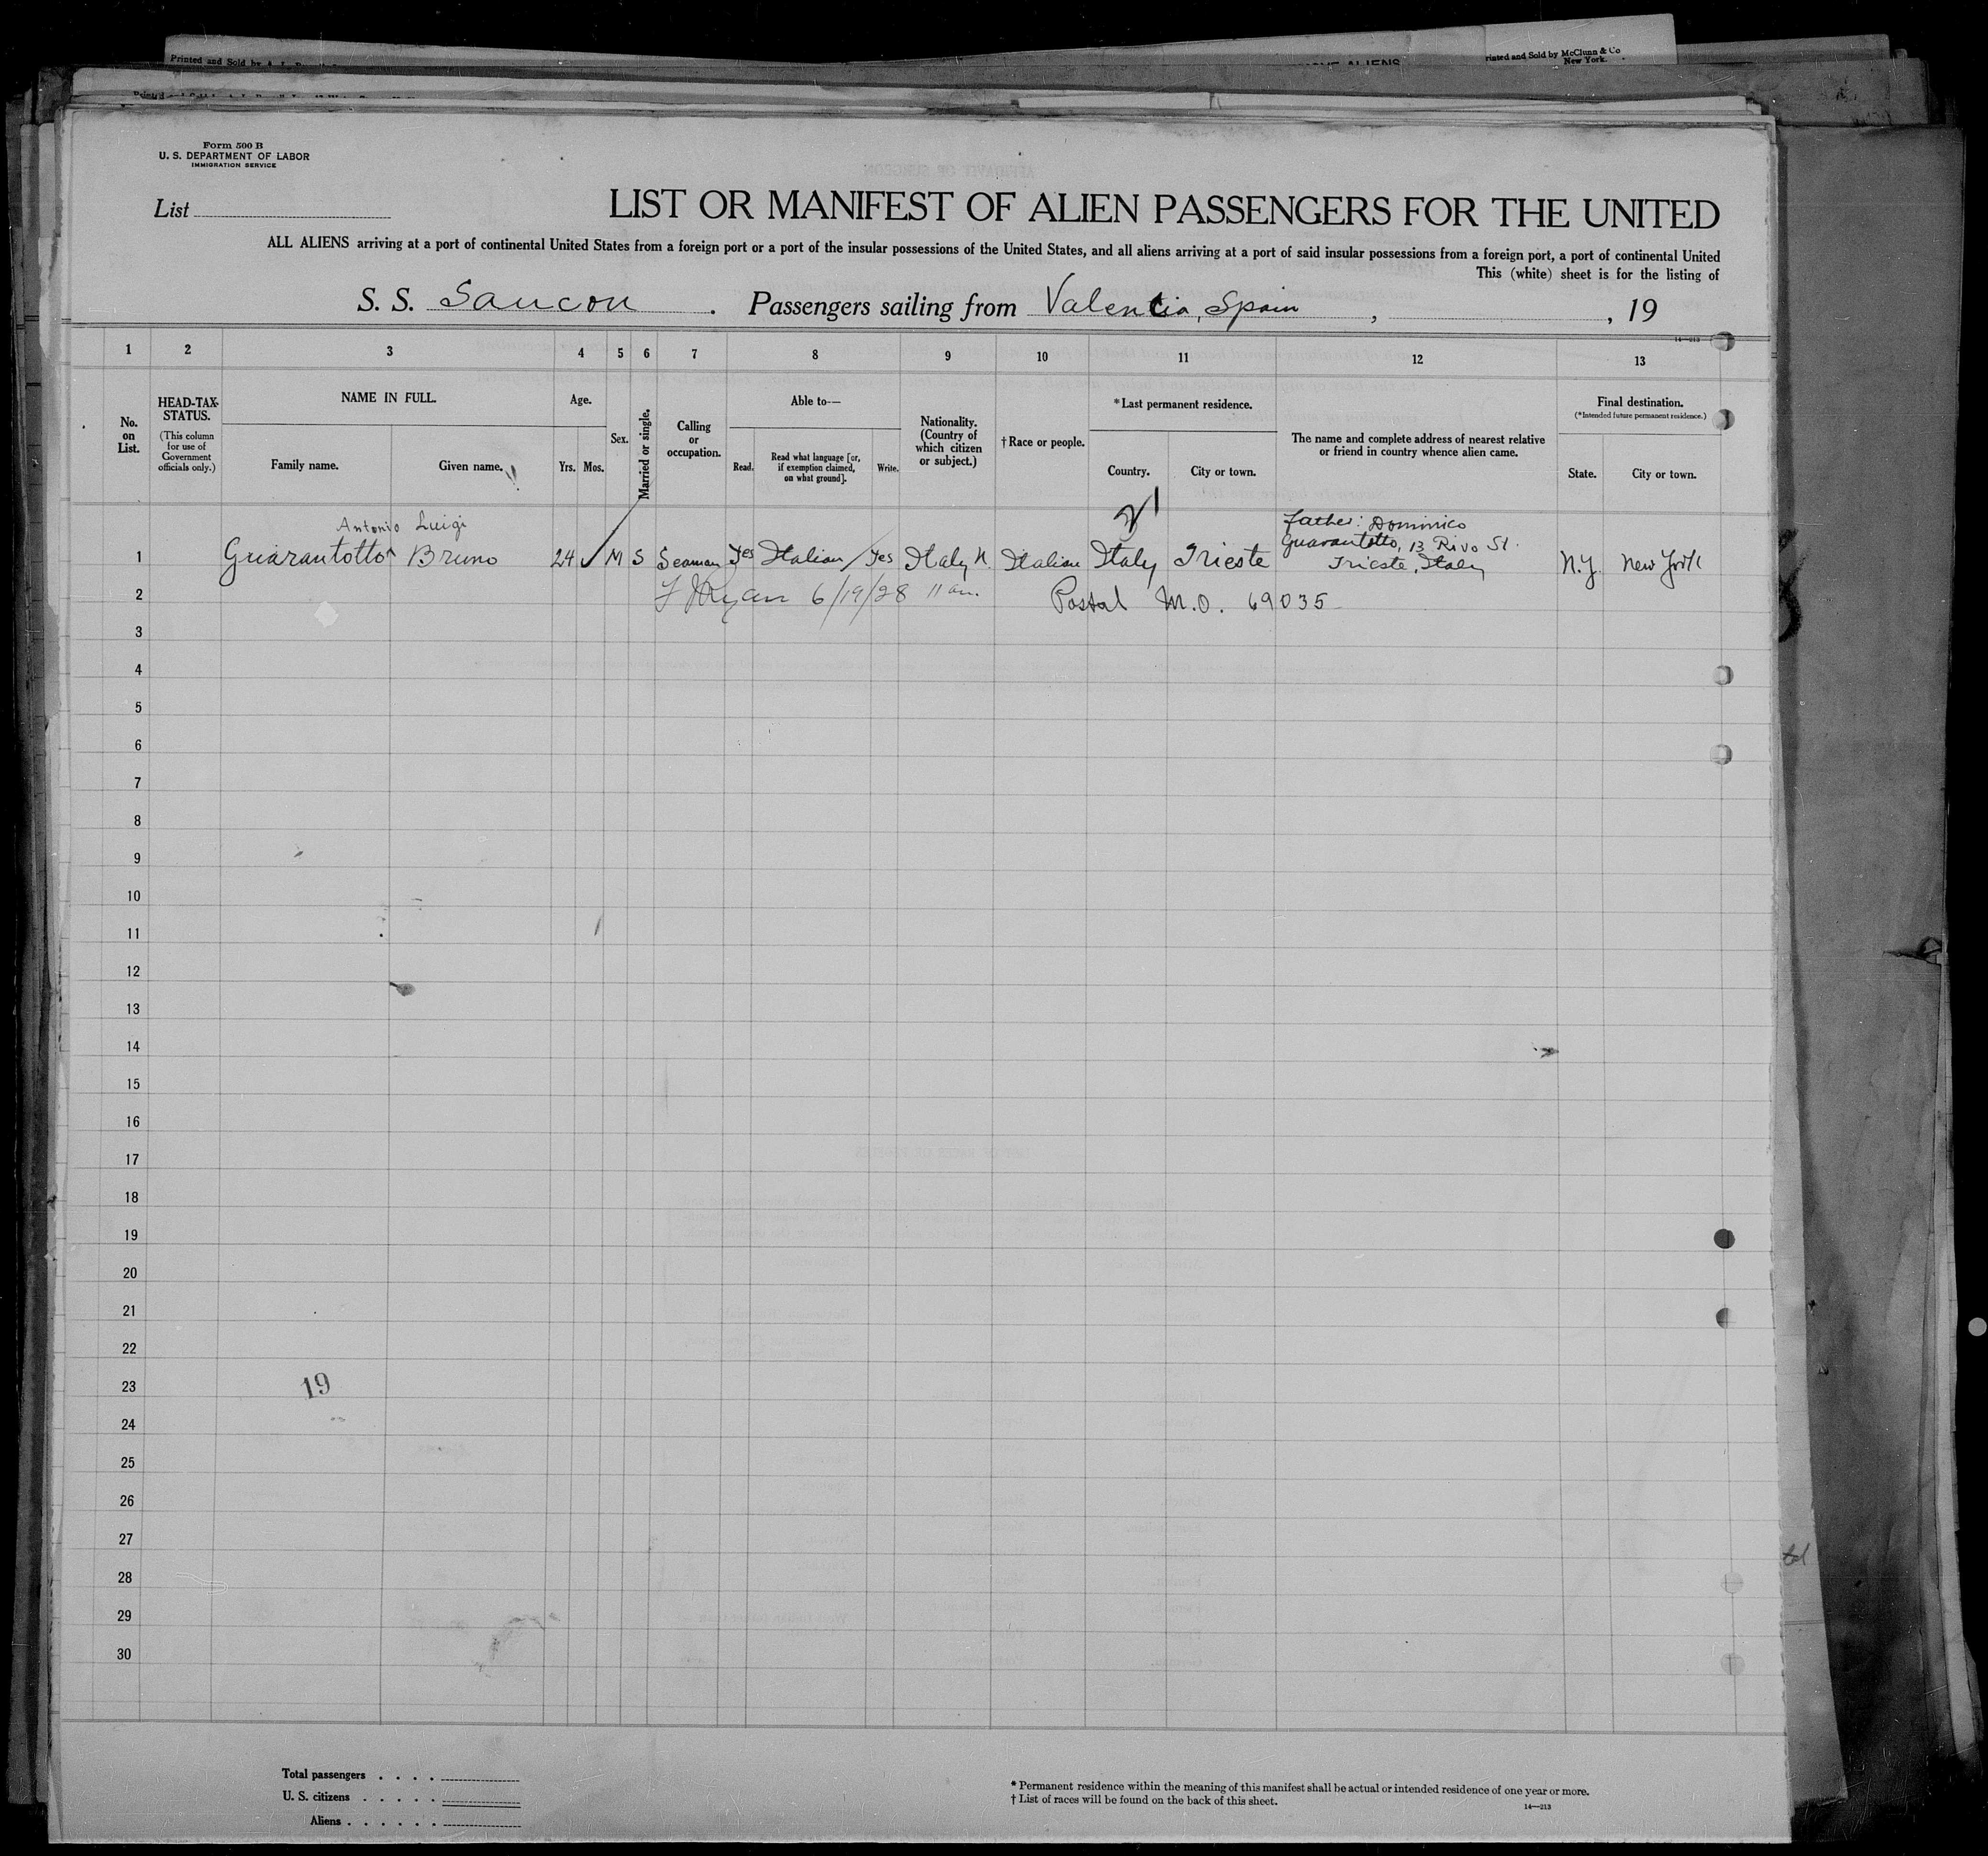 Printed and Sold by
rinted and Sold by McClunn & Co
New York.
Form 500 B
U. S. DEPARTMENT OF LABOR
IMMIGRATION SERVICE
List
LIST OR MANIFEST OF ALIEN PASSENGERS FOR THE UNITED
ALL ALIENS arriving at a port of continental United States from a foreign port or a port of the insular possessions of the United States, and all aliens arriving at a port of said insular possessions from a foreign port, a port of continental United
This (white) sheet is for the listing of
S. S. Saucon . Passengers sailing from Valencia, Spain , , 19
14—213
1 2 3 4 5 6 7 8 9 10 11 12 13
No. on List.
HEAD-TAX STATUS.
(This column for use of Government officials only.)
NAME IN FULL.
Family name. Given name.
Age.
Yrs. Mos.
Sex.
Married or single.
Calling or occupation.
Able to—
Read. Read what language [or, if exemption claimed, on what ground]. Write.
Nationality. (Country of which citizen or subject.)
† Race or people.
* Last permanent residence.
Country. City or town.
The name and complete address of nearest relative or friend in country whence alien came.
Final destination.
(*Intended future permanent residence.)
State. City or town.
Antonio Luigi
21
father: Dominico
Guarantotto, 13 Rivo St.
Trieste, Italy
1 Guarantotto Bruno 24 M S Seaman Yes Italian Yes Italy N. Italian Italy Trieste N.Y. New York
2 Ryan 6/19/28 11 am. Postal M.O. 69035
3
4
5
6
7
8
9
10
11
12
13
14
15
16
17
18
19
20
21
22
23 19
24
25
26
27
28
29
30
Total passengers . . . .
U. S. citizens . . . . .
Aliens . . . . . .
* Permanent residence within the meaning of this manifest shall be actual or intended residence of one year or more.
† List of races will be found on the back of this sheet.
14—213